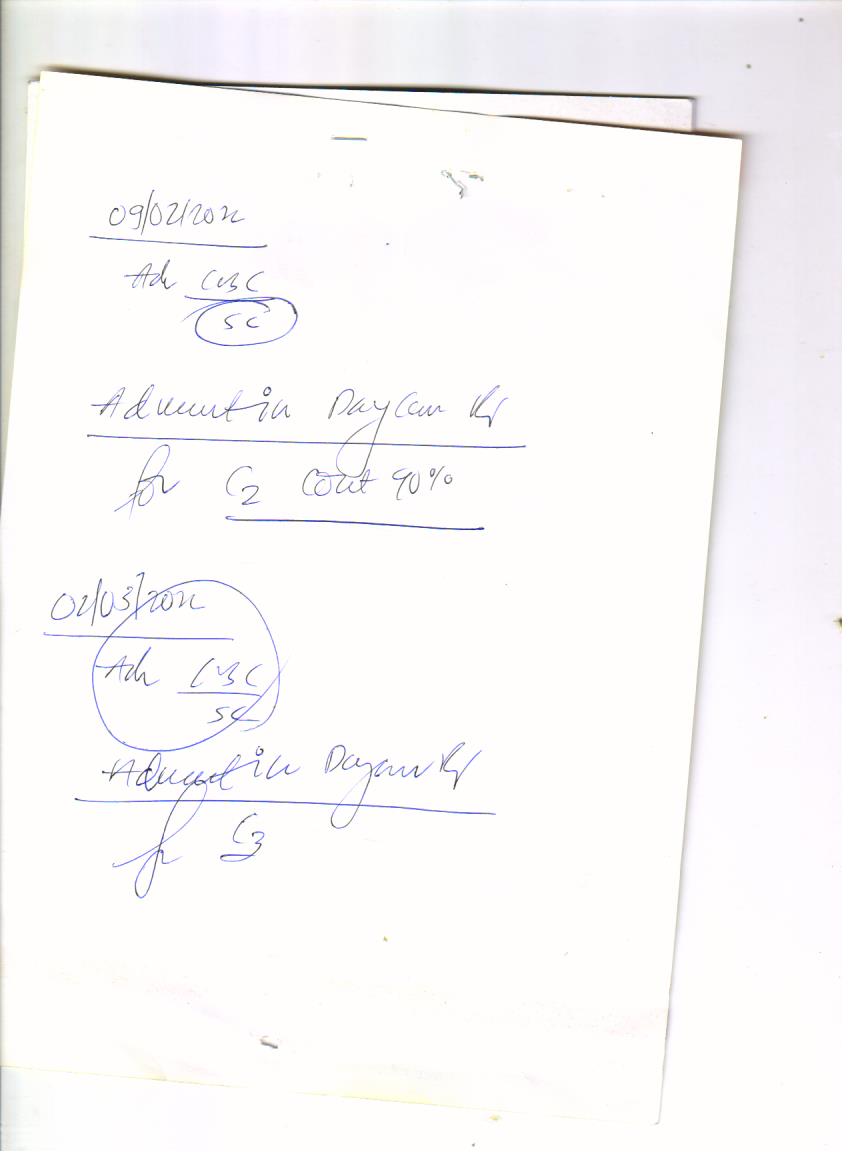 09/02/2022
Adv CBC
SC
Admit in Daycare
for C2 Cont 90%
02/03/2022
Adv CBC
SC
Admit in Daycare
for C3